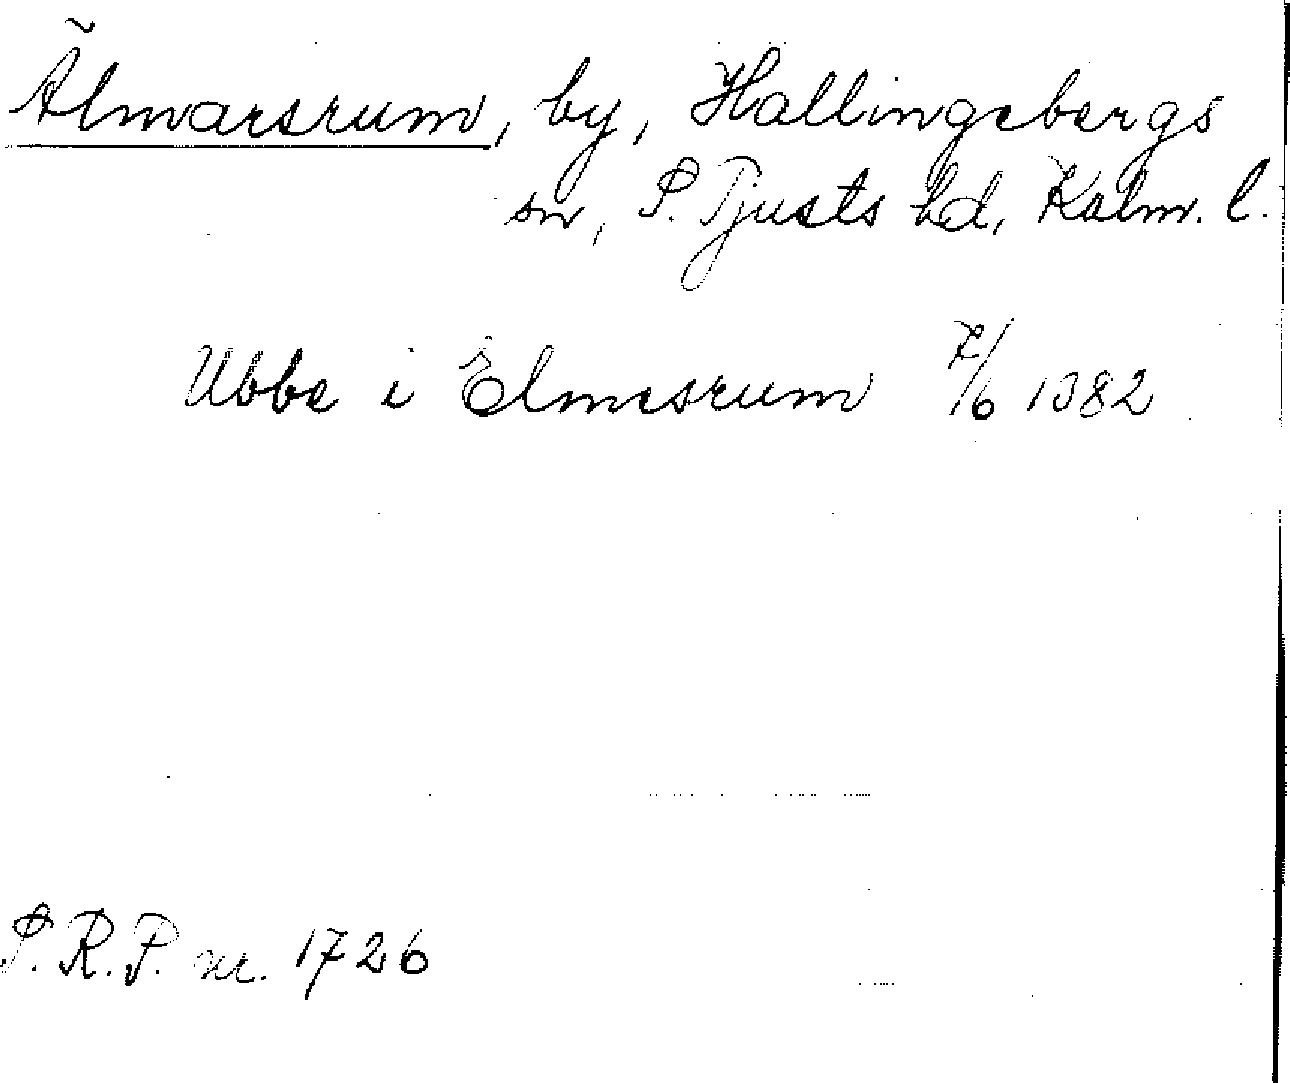 Älmarsrum, by, Hallingebergs
sn, S. Tjusts hd, Kalm. l.
Ubbe i Elmesrum 7/6 1382
S. R. P. nr. 1726